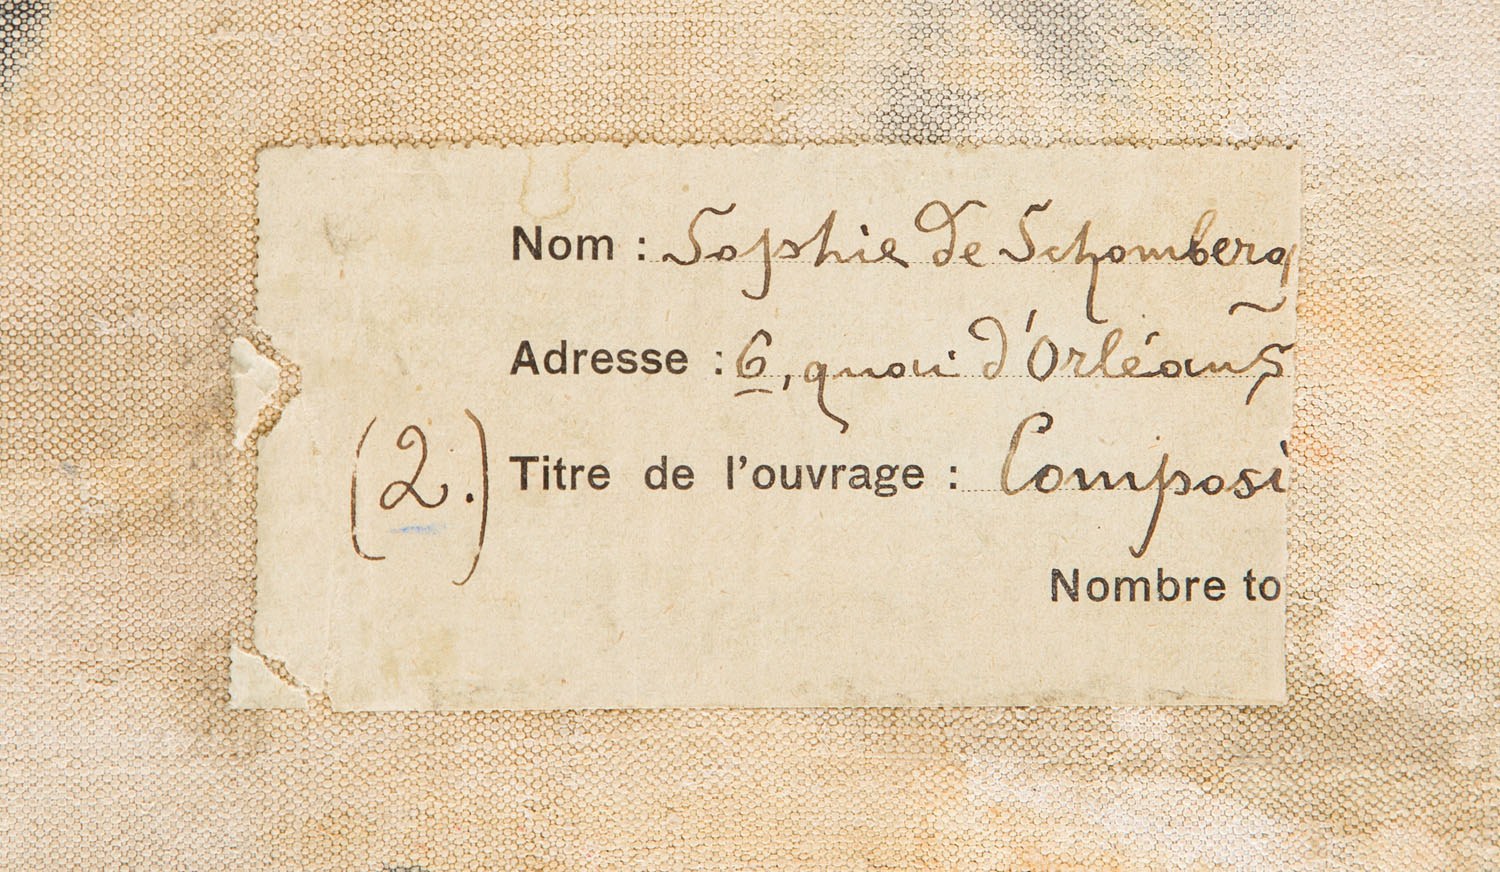 Nom : Sophie de Schomberg
Adresse : 6, quai d'Orléans
(2.) Titre de l'ouvrage : Composi
Nombre to